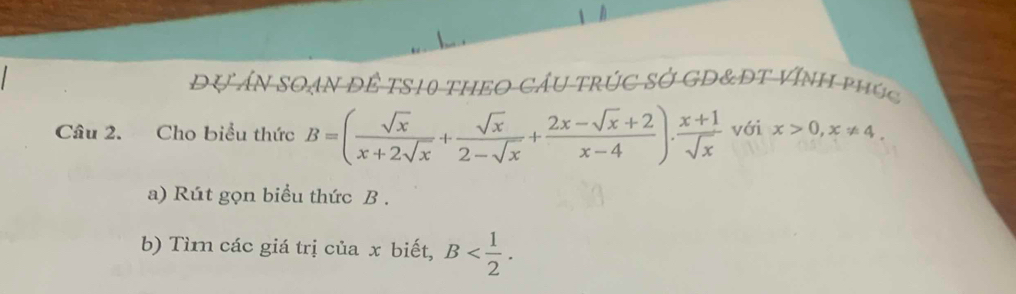 DỰ ÁN SOẠN ĐỀ TS10 THEO CẤU TRÚC SỞ GD&ĐT VĨNH PHÚC
Câu 2. Cho biểu thức $B = \left( \frac{\sqrt{x}}{x+2\sqrt{x}} + \frac{\sqrt{x}}{2-\sqrt{x}} + \frac{2x-\sqrt{x}+2}{x-4} \right) . \frac{x+1}{\sqrt{x}}$ với $x > 0, x \neq 4$.
a) Rút gọn biểu thức B.
b) Tìm các giá trị của x biết, $B < \frac{1}{2}$.